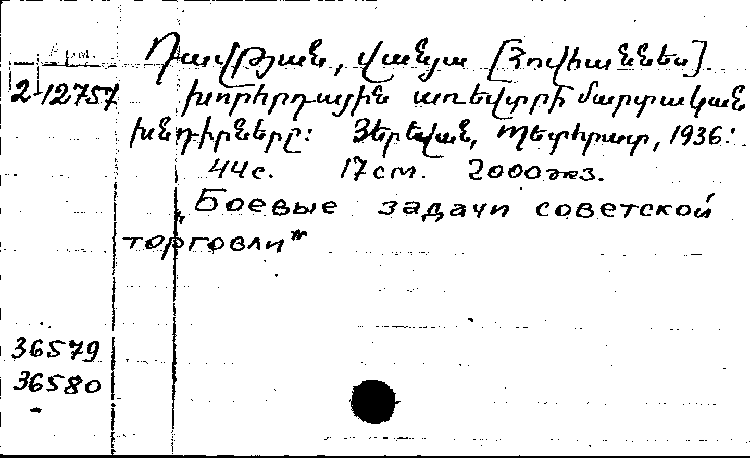 Арм.
Դավթյան, Վանյա [Հովհաննես]
2-12757 Խորհրդային առեվտրի մարտական
խնդիրները: Յերեվան, Պետհրատ, 1936:
44с. 17см. 2000экз.
„Боевые задачи советской
торговли"
36579
36580